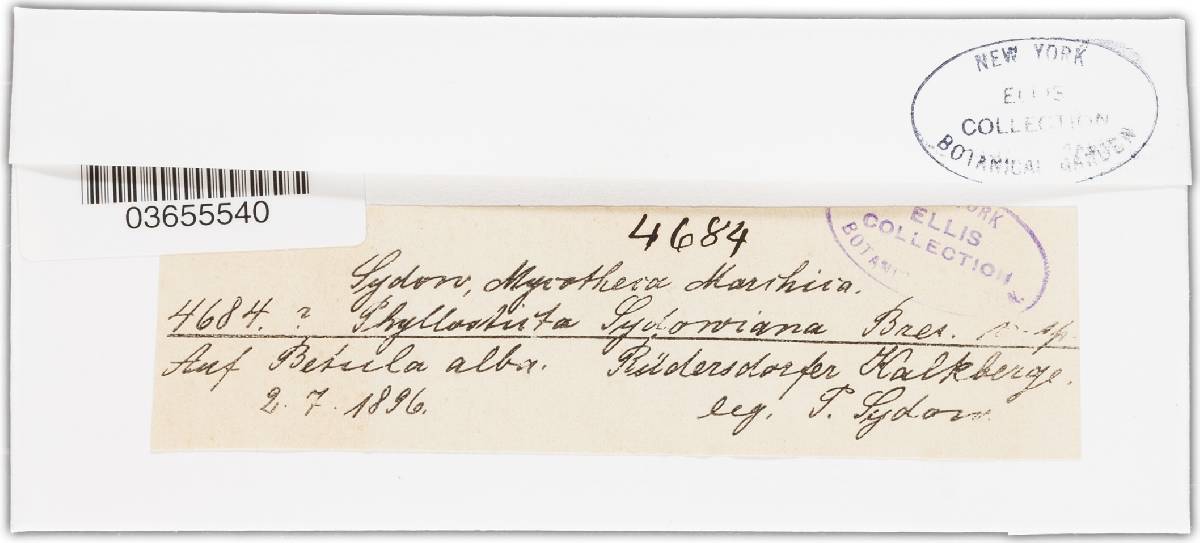 NEW YORK
ELLIS
COLLECTION
BOTANICAL GARDEN
03655540
4684
YORK
ELLIS
COLLECTION
Sydow, Mycotheca Marchica.
4684. ? Phyllosticta Sydowiana Bres. n. sp.
Auf Betula alba. Rüdersdorfer Kalkberge.
2. 7. 1896. leg. P. Sydow